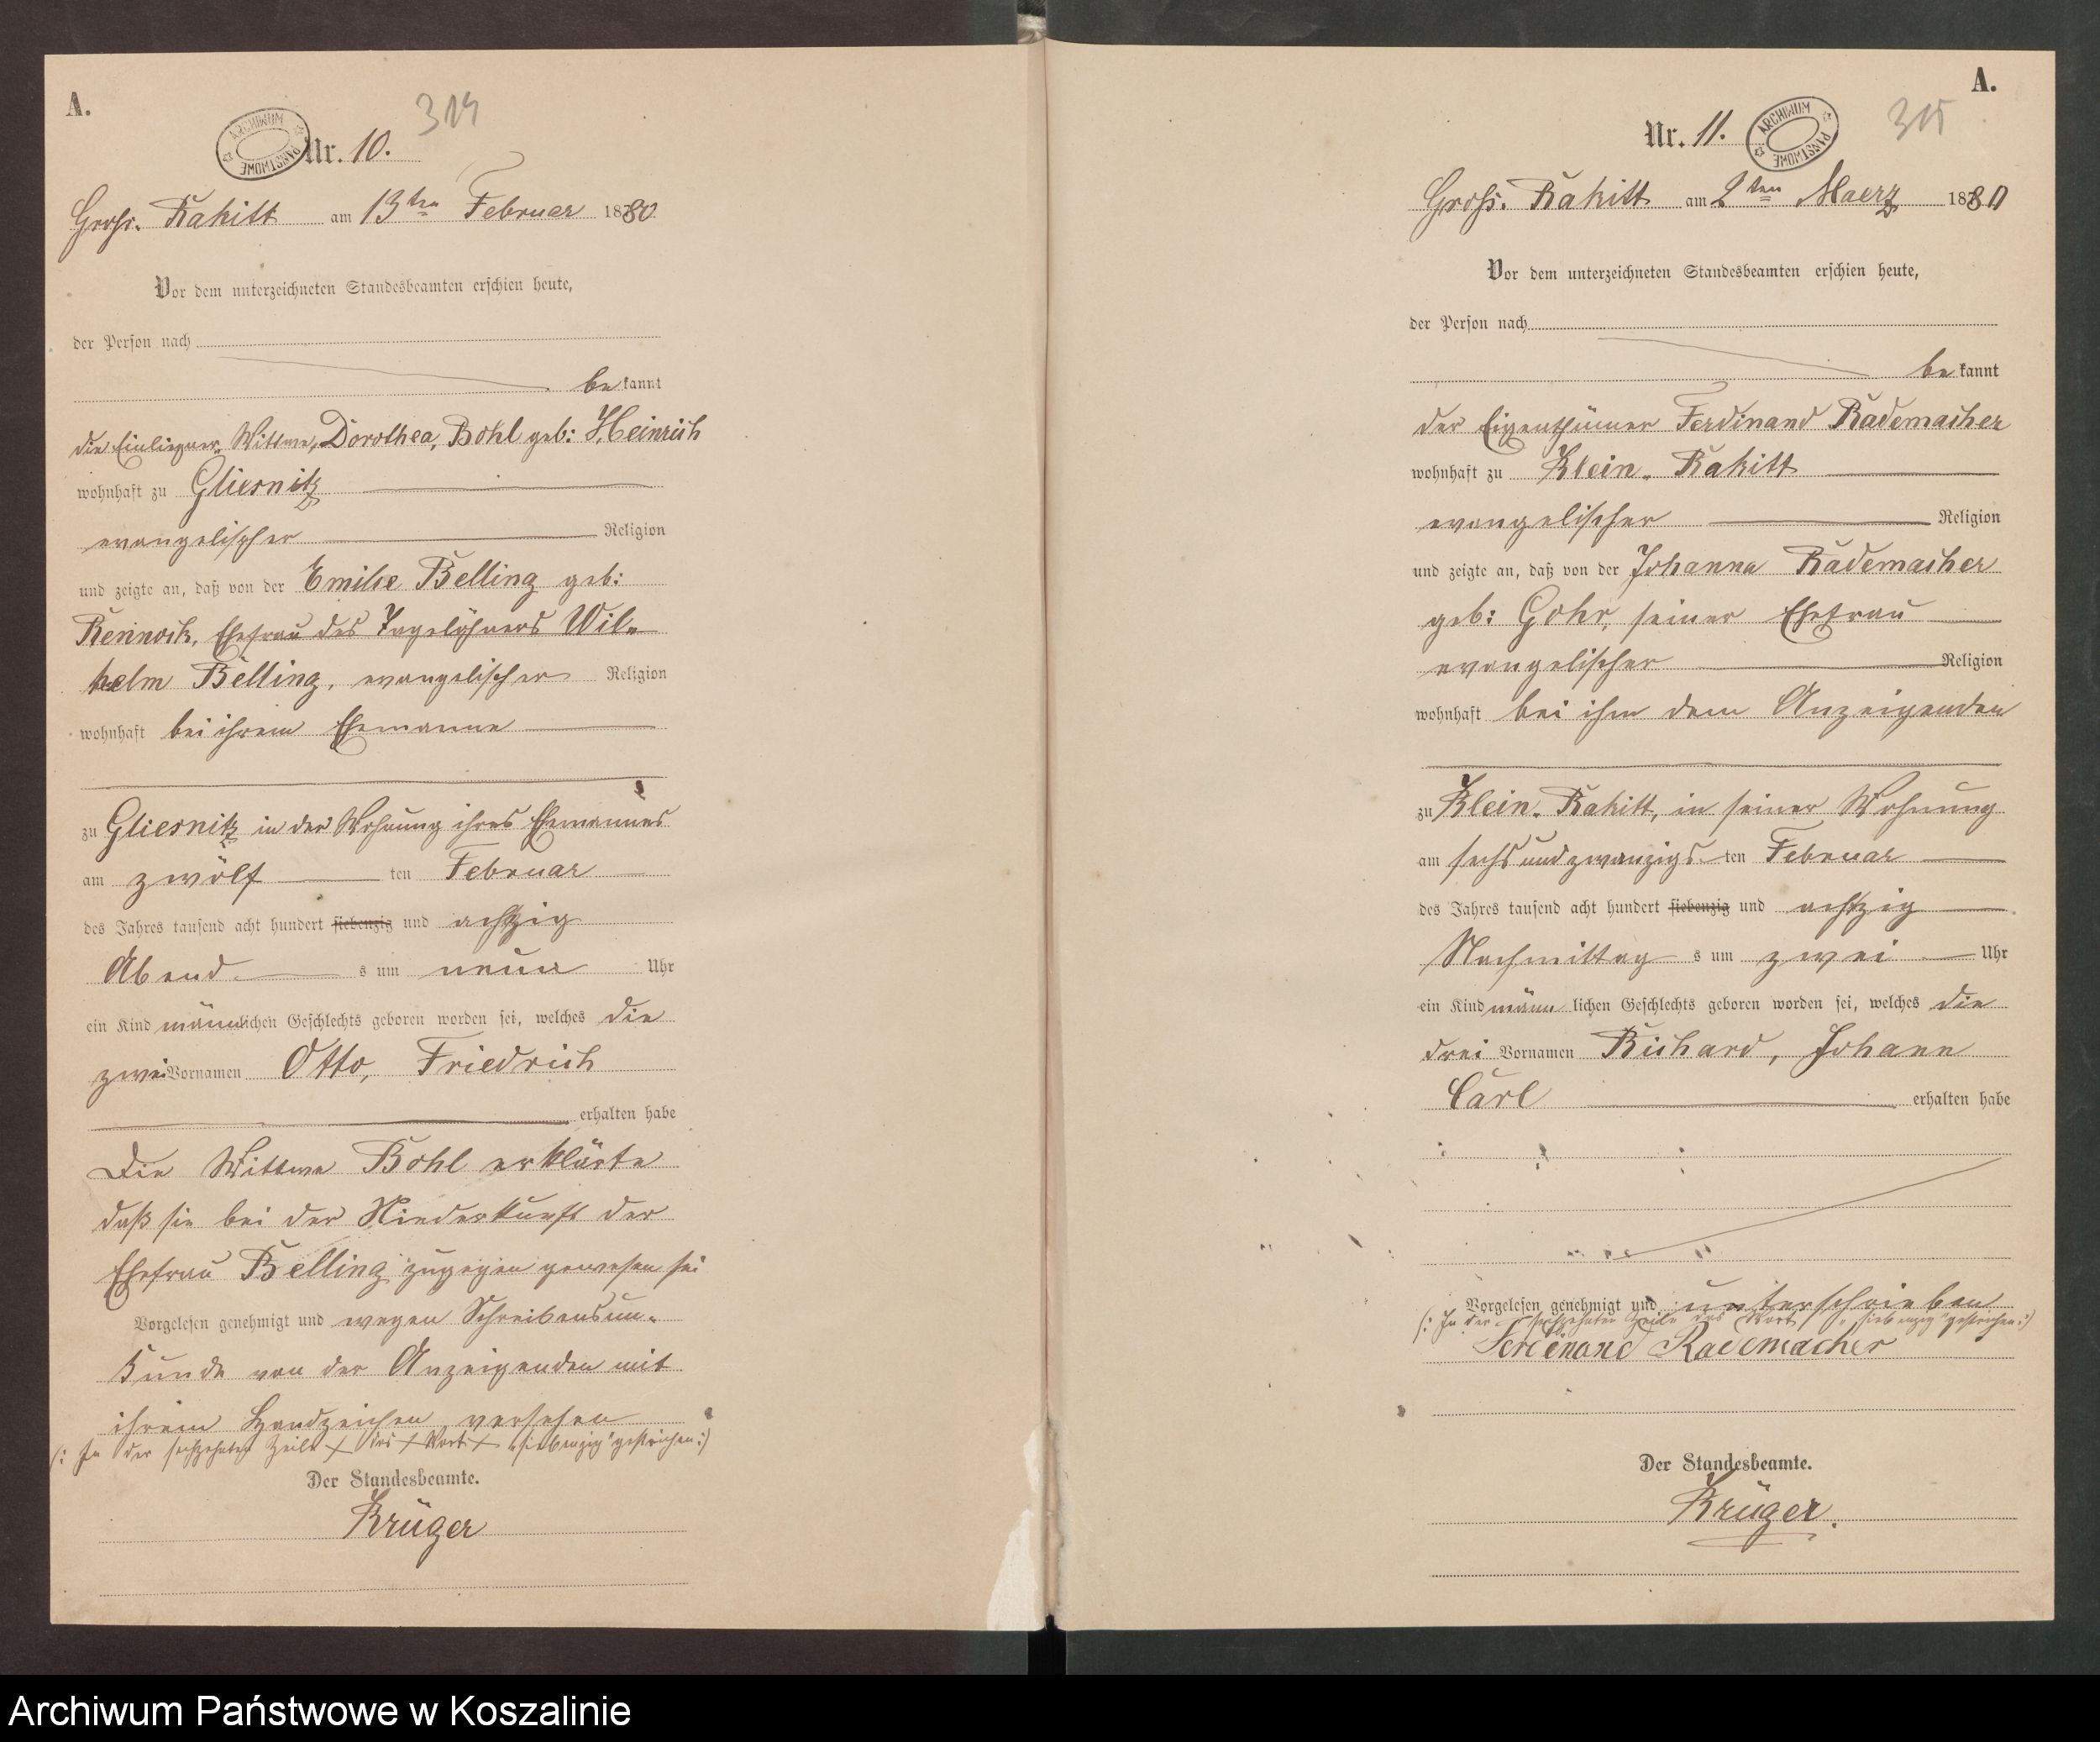 A.
ARCHIWUM PAŃSTWOWE
Nr. 10.
314
Gross. Rakitt am 13ten Februar 1880
Vor dem unterzeichneten Standesbeamten erschien heute,
der Person nach
bekannt
die Einlieger-Wittwe, Dorothea, Bohl geb: Heinrich
wohnhaft zu Gliesnitz
evangelischer Religion
und zeigte an, daß von der Emilie Belling geb:
Ehefrau des Tagelöhners Wil-
helm Belling, evangelischer Religion
wohnhaft bei ihrem Ehemanne
zu Gliesnitz in der Wohnung ihres Ehemannes
am zwölf ten Februar
des Jahres tausend acht hundert siebenzig und achtzig
Abend s um neun Uhr
ein Kind männlichen Geschlechts geboren worden sei, welches die
zwei Vornamen Otto, Friedrich
erhalten habe
Die Wittwe Bohl erklärte
daß sie bei der Niederkunft der
Ehefrau Belling zugegen gewesen sei
Vorgelesen genehmigt und wegen Schreibensun-
kunde von der Anzeigenden mit
ihrem Handzeichen versehen
(: In der sechzehnten Zeile + das + Wort + „siebenzig" gestrichen :)
Der Standesbeamte.
Krüger
A.
Nr. 11.
ARCHIWUM PAŃSTWOWE
315
Gross. Rakitt am 2ten Maerz 1880
Vor dem unterzeichneten Standesbeamten erschien heute,
der Person nach
bekannt
der Eigenthümer Ferdinand Rademacher
wohnhaft zu Klein-Rakitt
evangelischer Religion
und zeigte an, daß von der Johanna Rademacher
geb: Gohr, seiner Ehefrau
evangelischer Religion
wohnhaft bei ihm dem Anzeigenden
zu Klein-Rakitt, in seiner Wohnung
am sechs und zwanzigs ten Februar
des Jahres tausend acht hundert siebenzig und achtzig
Nachmittag s um zwei Uhr
ein Kind männ lichen Geschlechts geboren worden sei, welches die
drei Vornamen Richard, Johann
Carl erhalten habe
Vorgelesen genehmigt und unterschrieben
(: In der sechzehnten Zeile das Wort „siebenzig" gestrichen :)
Ferdinand Rademacher
Der Standesbeamte.
Krüger.
Archiwum Państwowe w Koszalinie